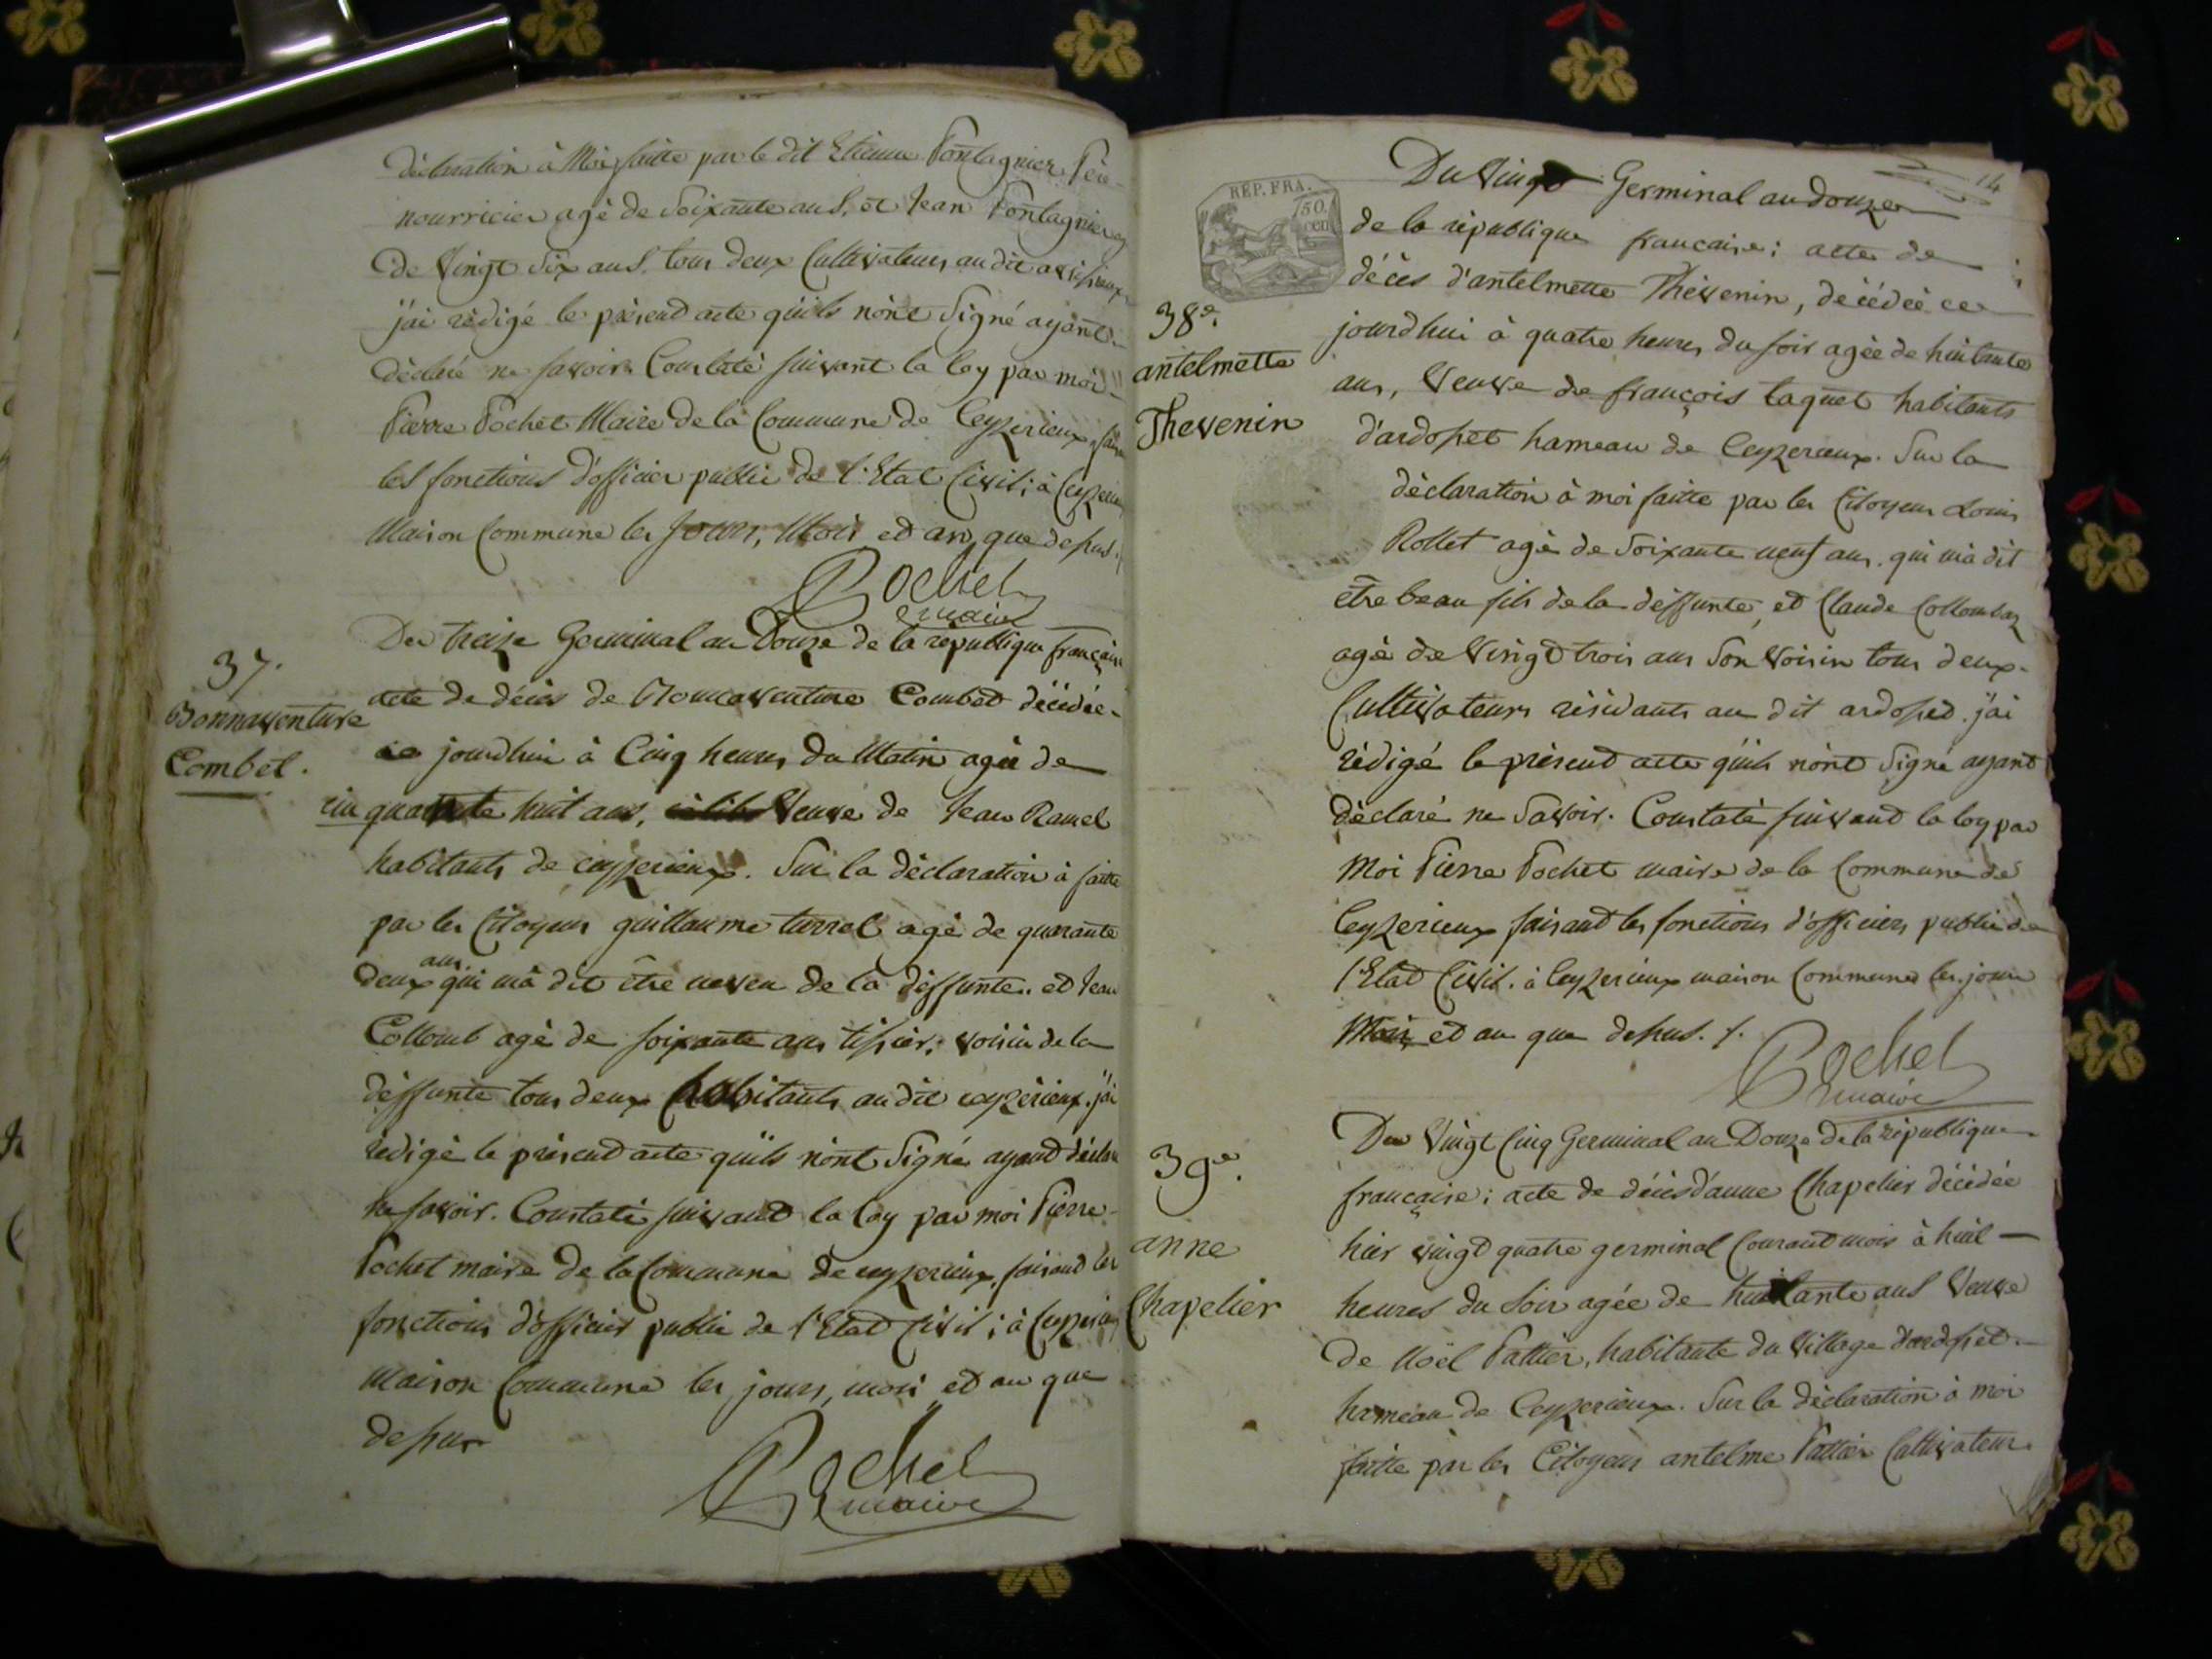 déclaration à Moi faitte par le dit Etienne Fontagnier Père
nourricier agé de Soixante ans, et Jean Fontagnier
de Vingt Six ans, tous deux Cultivateurs au dit
j'ai rédigé le présend acte quils nont Signé ayant
déclaré ne savoir. Constaté suivant la loy par moi
Pierre Pochet Maire de la Commune de Ceyzerieux
les fonctions d'officier public de l'Etat Civil; à Ceyzerieux
Maison Commune les Jours, Mois et an que dessus.
Pochet
maire
37.
Bonnaventure
Combet.
Du treize Germinal an Douze de la république française
acte de décès de Bonnaventure Combet décédée
ce jourdhui à Cinq heures du Matin agée de
cinquante huit ans, Veuve de Jean Ramel
habitants de ceyzerieux. Sur la déclaration à faitte
par les Citoyens guillaume turrel agé de quarante
deux ans qui m'a dit être neveu de la deffunte. et Jean
Collomb agé de soixante ans tissier, voisin de la
deffunte tous deux habitants au dit ceyzerieux. j'ai
rédigé le présend acte quils nont Signé ayand déclaré
ne savoir. Constaté suivand la loy par moi Pierre
Pochet maire de la Commune de ceyzerieux, faisand les
fonctions d'officier public de l'Etat Civil; à Ceyzerieux
Maison Commune les jours, mois et an que
dessus
Pochet
maire
14
REP. FRA.
50.
cen
38e.
antelmette
Thevenin
Du Vingt Germinal an douze
de la république francaise; acte de
décès d'antelmette Thévenin, décédée ce
jourdhui à quatre heures du soir agée de huitante
ans, Veuve de françois taquet habitants
d'ardosset hameau de Ceyzerieux. Sur la
déclaration à moi faitte par les Citoyens Louis
Rollet agé de Soixante neuf ans, qui m'a dit
être beau fils de la deffunte, et Claude Collombaz
agé de Vingt trois ans Son Voisin tous deux
Cultivateurs résidants au dit ardosset. j'ai
rédigé le présend acte quils nont Signé ayand
déclaré ne Savoir. Constaté suivand la loy par
Moi Pierre Pochet maire de la Commune de
Ceyzerieux faisand les fonctions d'officiers public de
l'Etat Civil. à Ceyzerieux maison Commune les jours
Mois et an que dessus. /.
Pochet
maire
39e.
anne
Chapelier
Du Vingt Cinq Germinal an Douze de la république
française; acte de décès d'anne Chapelier décédée
hier vingt quatre germinal Courand mois à huit
heures du Soir agée de huitante ans Veuve
de Noël Pattier, habitante du Village d'ardosset
hameau de Ceyzerieux. Sur la déclaration à moi
faitte par les Citoyens antelme Pattier Cultivateur